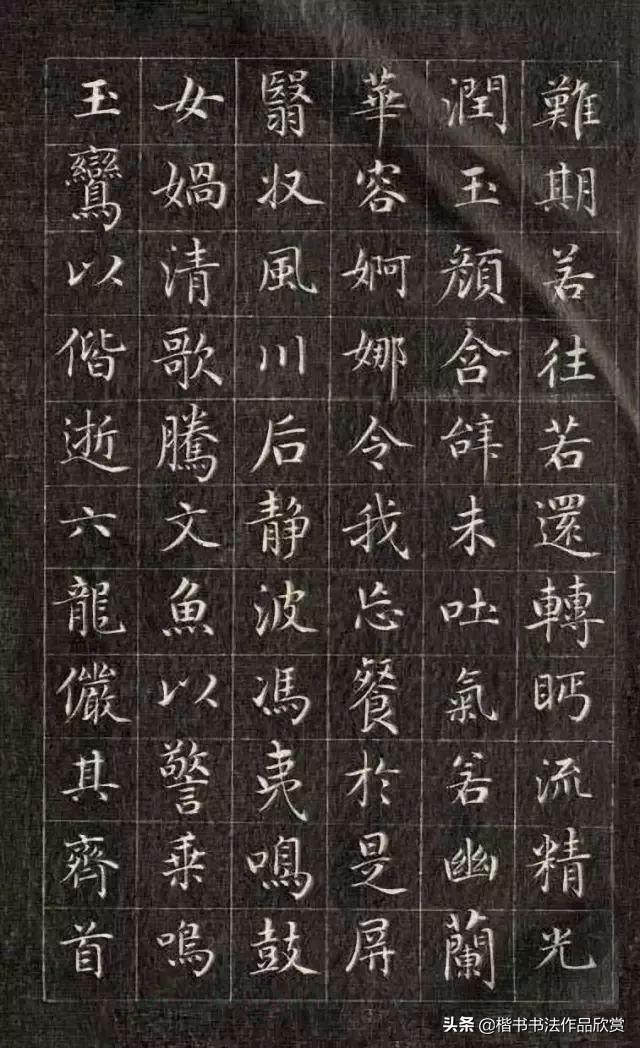 難期若往若還轉眄流精光
潤玉顏含辝未吐氣若幽蘭
華容婀娜令我忘餐於是屏
翳収風川后静波馮夷鳴鼓
女媧清歌騰文魚以警乗鳴
玉鸞以偕逝六龍儼其齊首
头条 @楷书书法作品欣赏